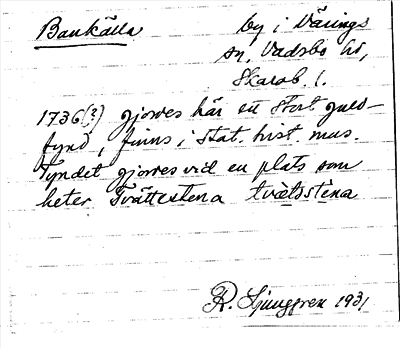 Bankälla by i Värings
sn, Vadsbo hd,
Skarab. l.
1736(?) gjordes här ett stort guld-
fynd, finns i Stat. hist. mus.
Fyndet gjordes vid en plats som
heter Tvättestena tvätsstena
R. Ljunggren 1931